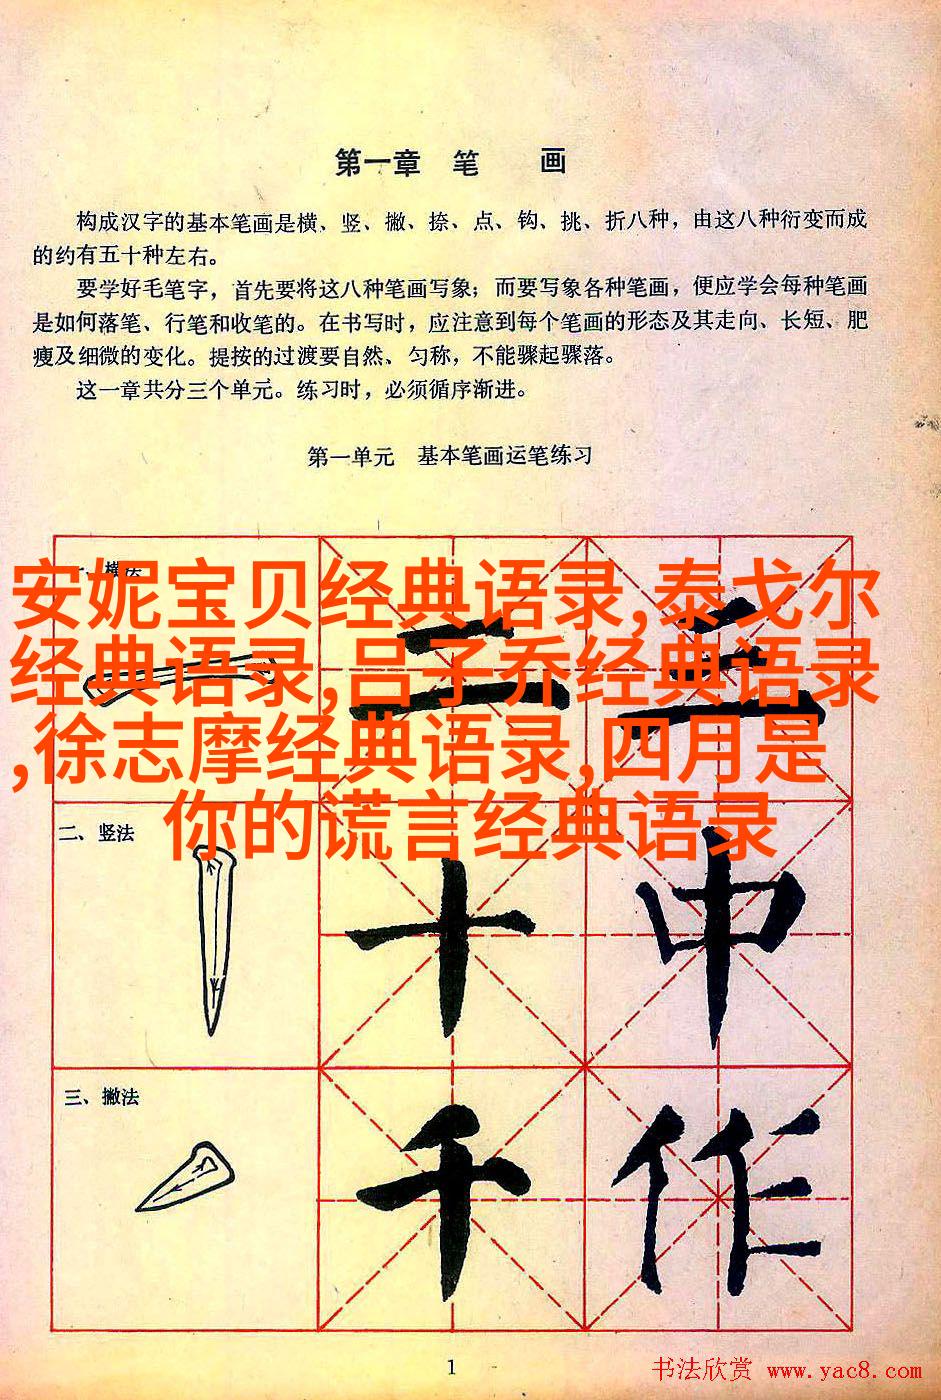 第一章 笔 画
构成汉字的基本笔画是横、竖、撇、捺、点、钩、挑、折八种，由这八种衍变而成
的约有五十种左右。
要学好毛笔字，首先要将这八种笔画写象；而要写象各种笔画，便应学会每种笔画
是如何落笔、行笔和收笔的。在书写时，应注意到每个笔画的形态及其走向、长短、肥
瘦及细微的变化。提按的过渡要自然、匀称，不能骤起骤落。
这一章共分三个单元。练习时，必须循序渐进。
第一单元 基本笔画运笔练习
一、横法
安妮宝贝经典语录,泰戈尔
经典语录,吕子乔经典语录
,徐志摩经典语录,四月是
你的谎言经典语录
二 三
二、竖法
十 中
三、撇法
千 作
1
书法欣赏 www.yac8.com